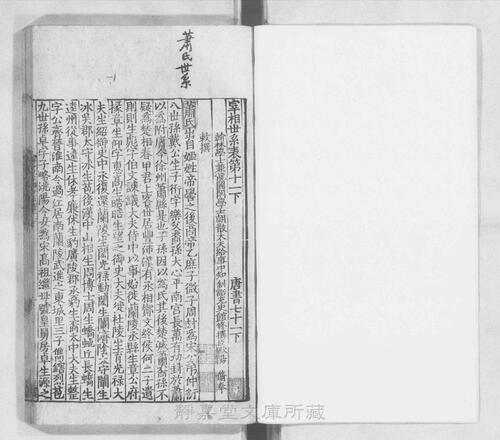 蕭氏世系
宰相世系表第十一下　唐書七十一下
翰林學士兼龍圖閣學士朝散大夫給事中知制誥充史館修撰臣歐陽　脩奉
敕撰
蕭氏出自姬姓帝嚳之後商帝乙庶子微子周封為宋公弟仲衍
八世孫戴公生子衎字樂父裔孫大心平南宮長萬有功封於蕭
以為附庸今徐州蕭縣是也子孫因以為氏其後楚滅蕭裔孫不
疑為楚相春申君上客世居豐沛漢有丞相酇文終侯何二子遺
則則生彪字伯文諫議大夫侍中以事始徙蘭陵丞縣生章公府
掾章生仰字惠高生皓皓生望之御史大夫徙杜陵生育光祿大
夫生紹御史中丞復還蘭陵生閎光祿勳閎生闡濟陰太守闡生
冰吳郡太守冰生苞後漢中山相生周博士周生蟜蛇丘長蟜生
逵州從事逵生休孝廉休生豹廣陵郡丞豹生裔太中大夫生整
字公齊晉淮南令過江居南蘭陵武進之東城里三子雋鎋烈苞
九世孫卓字子略洛陽令女為宋高祖繼母號皇舅房卓生源之
靜嘉堂文庫所藏